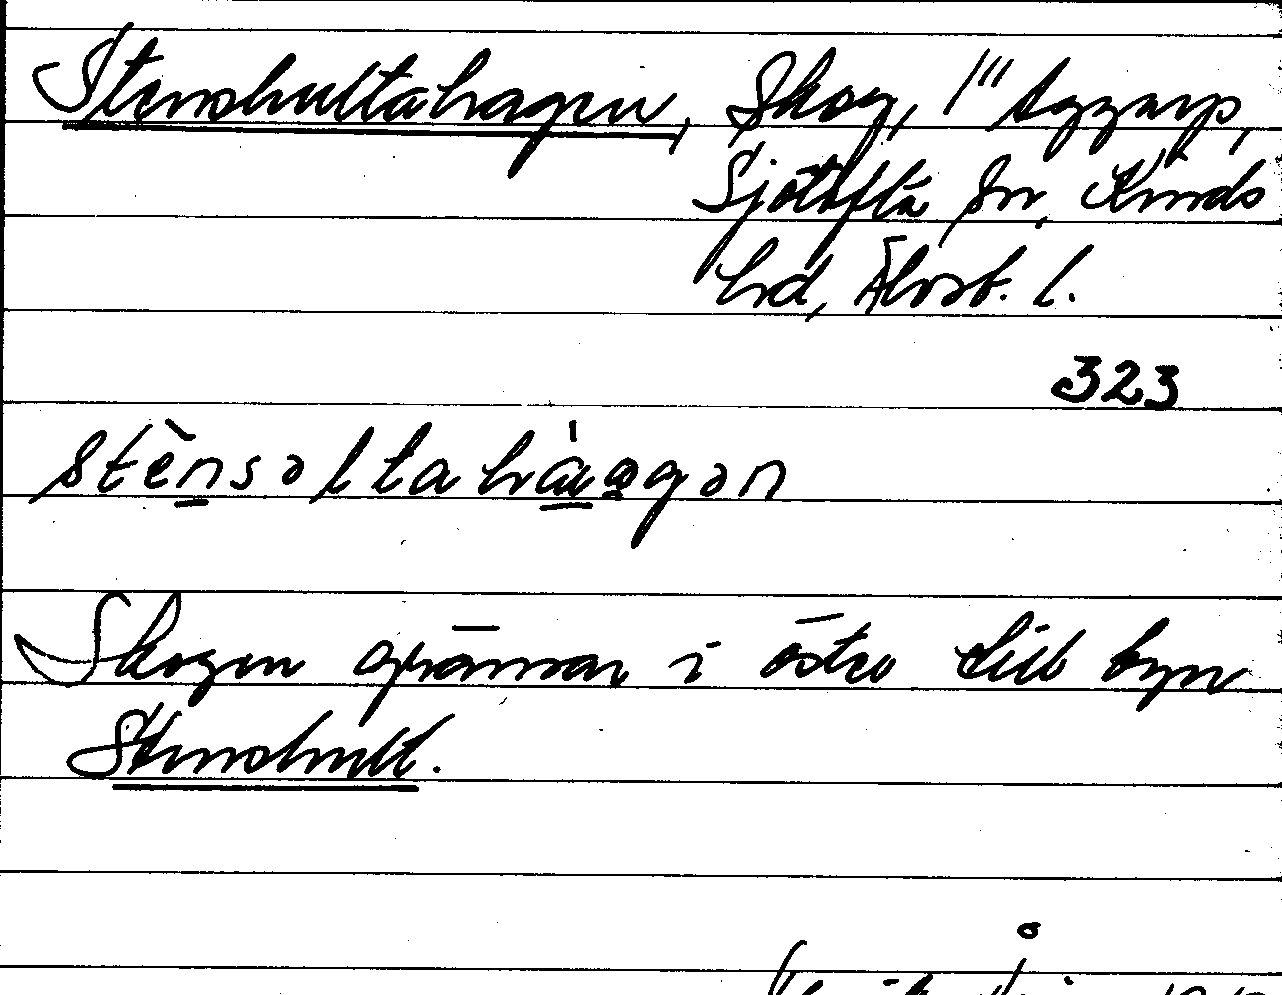 Stenshultahagen, Skog, 1''' Aggarp,
Sjötofta sn, Kinds
hd, Älvsb. l.
323
stènsəltahàagən
Skogen gränsar i öster till byn
Stenshult.